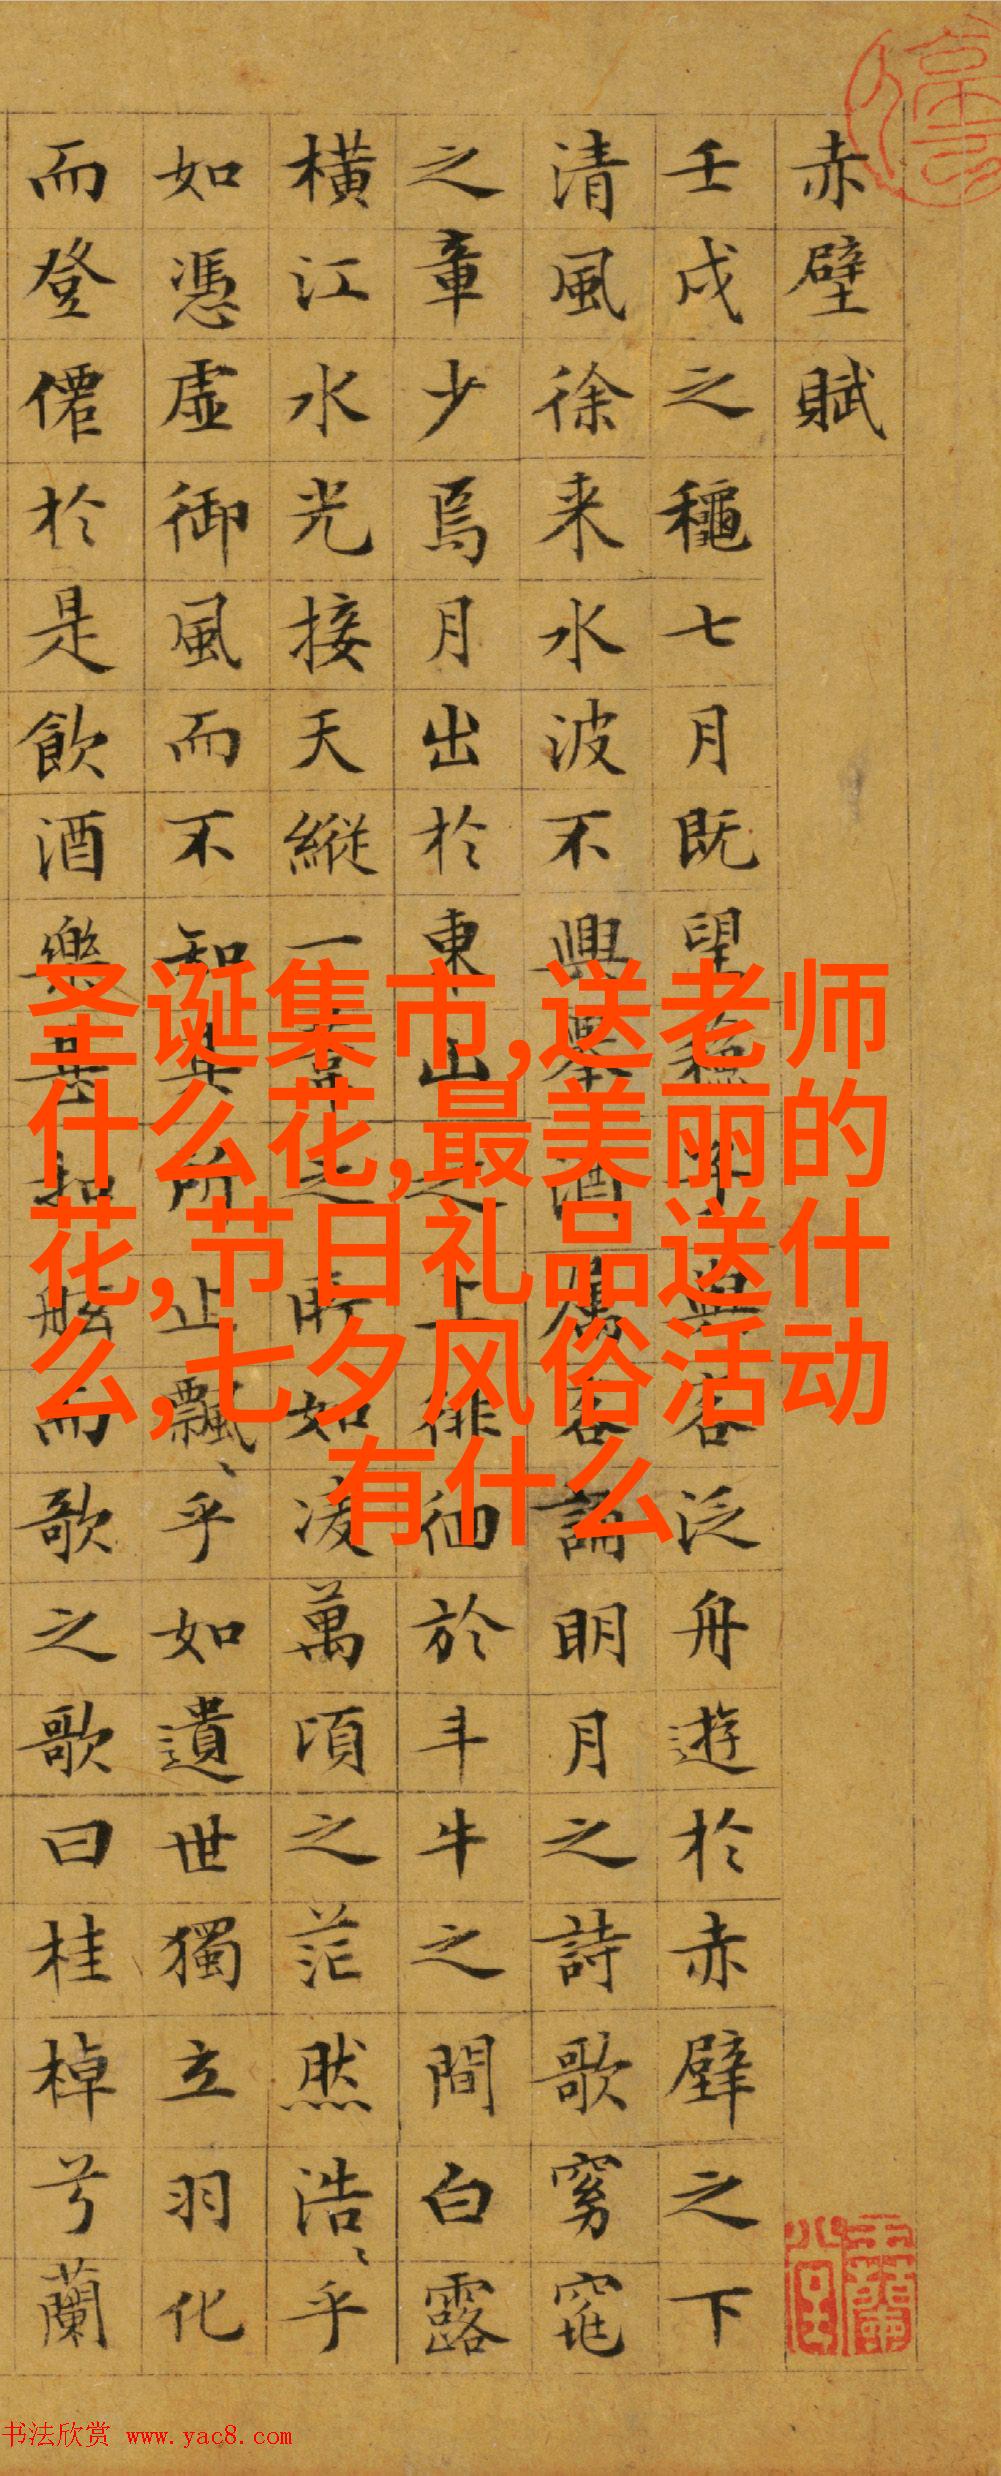 赤壁賦
壬戌之龝七月既望蘇子與客泛舟遊於赤壁之下
清風徐来水波不興舉酒屬客誦眀月之詩歌窈窕
之章少焉月出於東山之上徘徊於斗牛之間白露
横江水光接天縱一葦之所如凌萬頃之茫然浩、乎
如憑虛御風而不知其所止飄、乎如遺世獨立羽化
而登僊於是飲酒樂甚扣舷而歌之歌曰桂棹兮蘭
圣诞集市,送老师
什么花,最美丽的
花,节日礼品送什
么,七夕风俗活动
有什么
书法欣赏 www.yac8.com